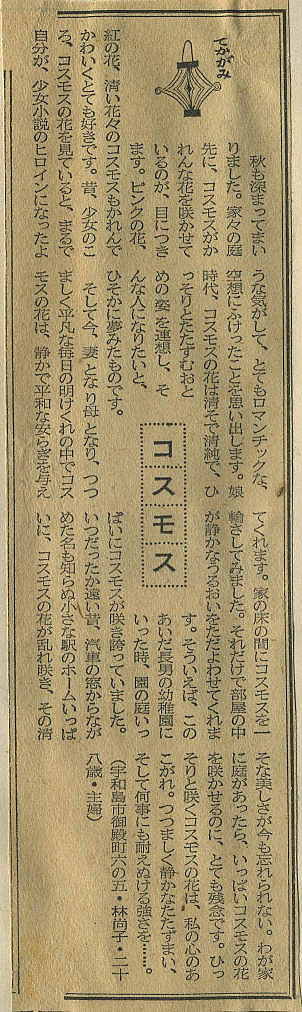 てがみ
コスモス
秋も深まってまい
りました。家々の庭
先に、コスモスがか
れんな花を咲かせて
いるのが、目につき
ます。ピンクの花、
紅の花、清い花々のコスモスもかれんで
かわいくとても好きです。昔、少女のこ
ろ、コスモスの花を見ていると、まるで
自分が、少女小説のヒロインになったよ
うな気がして、とてもロマンチックな、
空想にふけったことを思い出します。娘
時代、コスモスの花は清そで清純で、ひ
っそりとたたずむおと
めの姿を連想し、そ
んな人になりたいと、
ひそかに夢みたものです。
そして今、妻となり母となり、つつ
ましく平凡な毎日の明けくれの中でコス
モスの花は、静かで平和な安らぎを与え
てくれます。家の床の間にコスモスを一
輪さしてみました。それだけで部屋の中
が静かなうるおいをただよわせてくれま
す。そういえば、この
あいだ長男の幼稚園に
いった時、園の庭いっ
ぱいにコスモスが咲き誇っていました。
いつだったか遠い昔、汽車の窓からなが
めた名も知らぬ小さな駅のホームいっぱ
いに、コスモスの花が乱れ咲き、その清
そな美しさが今も忘れられない。わが家
に庭があったら、いっぱいコスモスの花
を咲かせるのに、とても残念です。ひっ
そりと咲くコスモスの花は、私の心のあ
こがれ。つつましく静かなたたずまい、
そして何事にも耐えぬける強さを……。
(宇和島市御殿町六の五・林尚子・二十
八歳・主婦)